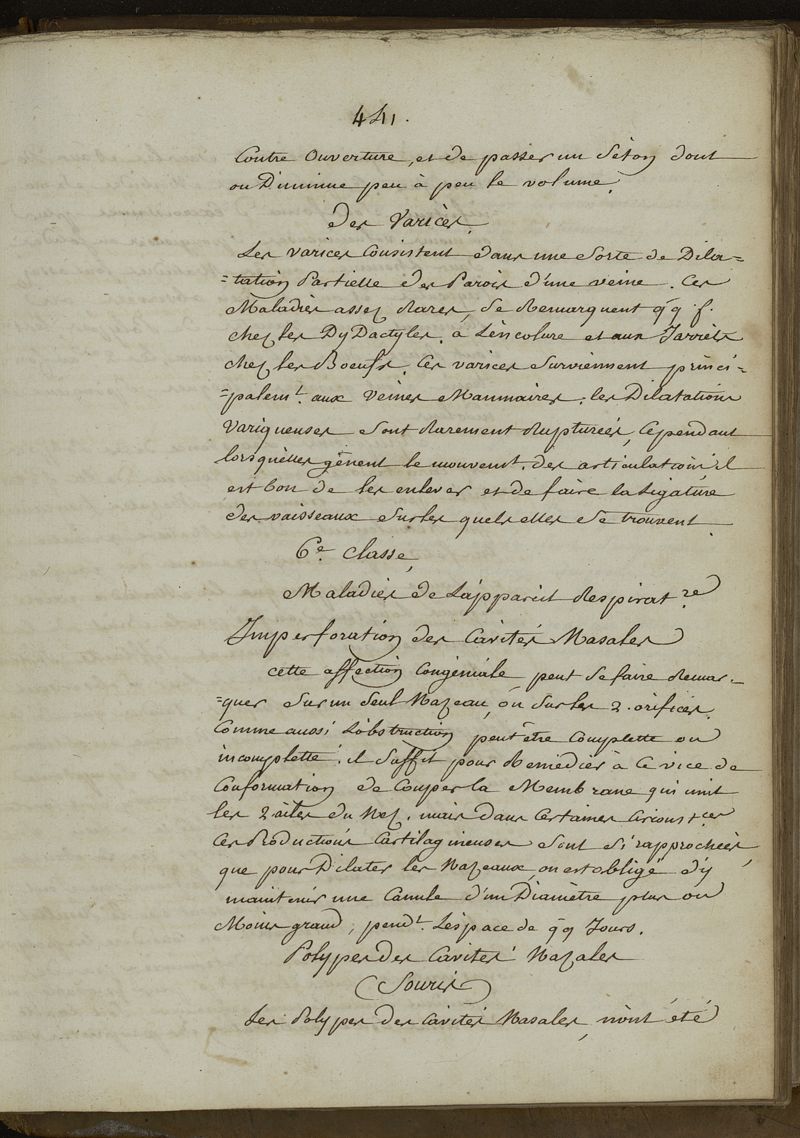 441.
Contre Ouverture, et de passer un Séton dont
on Diminue peu à peu le volume.
Des Varices.
Les varices Consistent dans une Sorte de Dila=
=tation Partielle des Parois d'une veine. Ces
Maladies assez Rares, se Remarquent qq. f.
chez les DyDactyles, à L'encolure et aux Jarrets
chez les Boeufs. Ces varices surviennent princi=
=palemt. aux veines Mammaires; les Dilatations
Variqueuses sont Rarement Rupturées, Cependant
lorsqu'elles gênent le mouvemt. des articulations il
est bon de les enlever et de faire la Ligature
des vaisseaux Sur les quels elles se trouvent.
6e. Classe,
Maladies de L'appareil Respiratre
Imperforation des Cavités Nasales
cette affection Congéniale peut se faire Remar=
=quer Sur un Seul Nazeau, ou Sur les 2. orifices.
Comme aussi L'obstruction peut être Complette ou
incomplette. il Suffit pour Remédier à Ce vice de
Conformation de Couper la Membrane qui unit
les 2 ailes du Nez. mais dans Certaines Circonstces
Ces Productions Cartilagineuses sont Si rapprochées,
que pour Dilater les Nazeaux, on est obligé d'y
maintenir une Canule d'un Diamètre plus ou
Moins grand, pendt. L'espace de qq Jours.
Polypes des Cavités Nazales
(Souris)
Les Polypes des Cavités Nasales, n'ont été